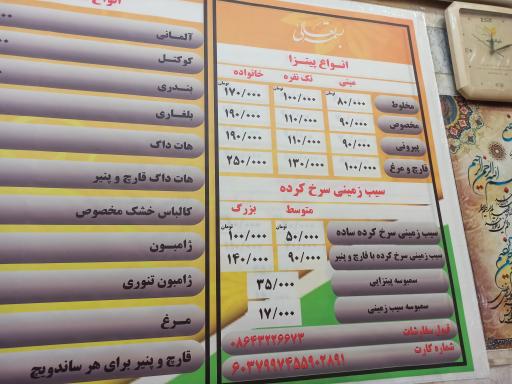 انواع پیتزا
مینی تک نفره خانواده
مخلوط ۸۰/۰۰۰ تومان ۱۰۰/۰۰۰ تومان ۱۷۰/۰۰۰ تومان
مخصوص ۹۰/۰۰۰ ۱۱۰/۰۰۰ ۱۹۰/۰۰۰
پپرونی ۹۰/۰۰۰ ۱۱۰/۰۰۰ ۱۹۰/۰۰۰
قارچ و مرغ ۱۰۰/۰۰۰ ۱۳۰/۰۰۰ ۲۵۰/۰۰۰
سیب زمینی سرخ کرده
متوسط بزرگ
سیب زمینی سرخ کرده ساده ۵۰/۰۰۰ تومان ۱۰۰/۰۰۰ تومان
سیب زمینی سرخ کرده با قارچ و پنیر ۹۰/۰۰۰ ۱۴۰/۰۰۰
سمبوسه پیتزایی ۳۵/۰۰۰
سمبوسه سیب زمینی ۱۷/۰۰۰
قبول سفارشات ۰۸۶۴۳۲۲۶۶۷۳
شماره کارت ۶۰۳۷۹۹۷۴۵۵۹۰۲۸۹۱
انواع
آلمانی
کوکتل
بندری
بلغاری
هات داگ
هات داگ قارچ و پنیر
کالباس خشک مخصوص
ژامبون
ژامبون تنوری
مرغ
قارچ و پنیر برای هر ساندویچ